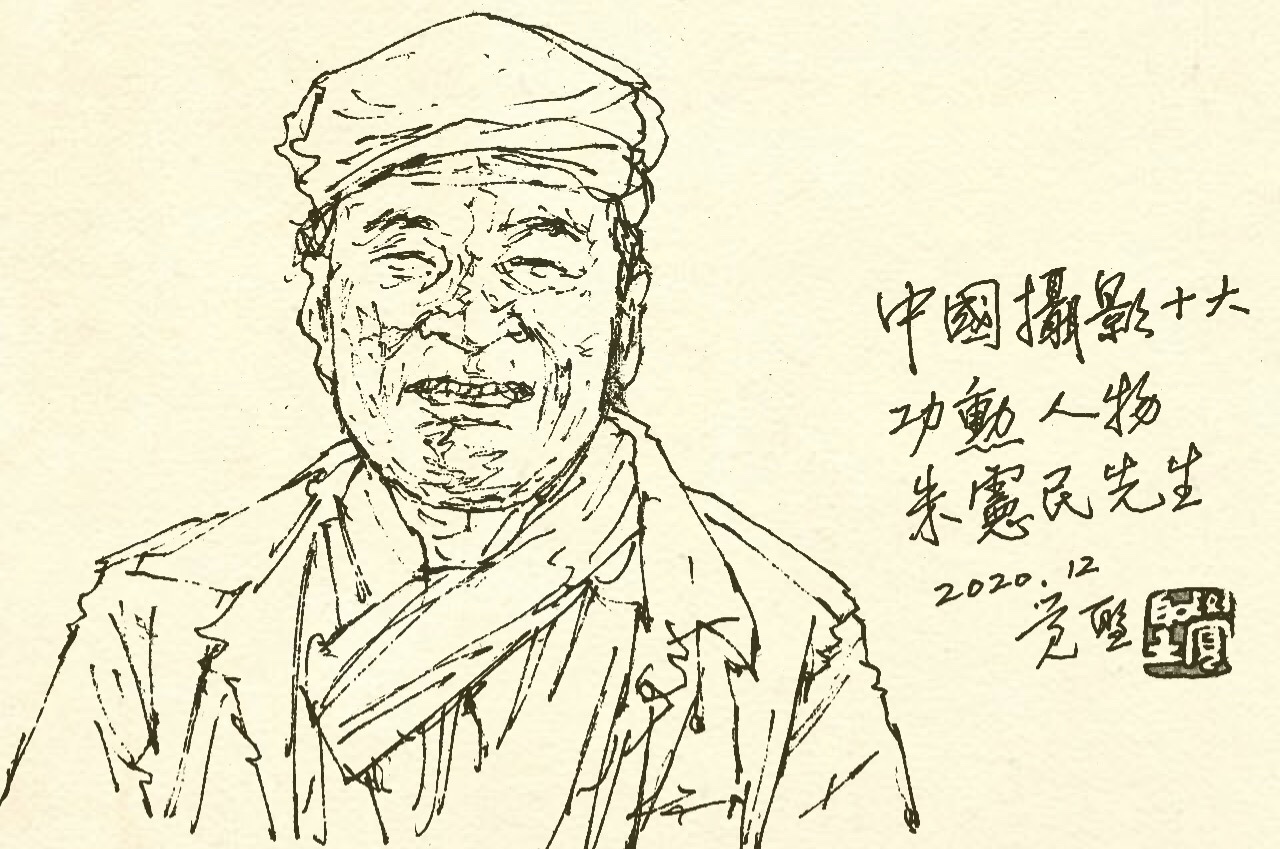 中國攝影十大
功勳人物
朱憲民先生
2020.12